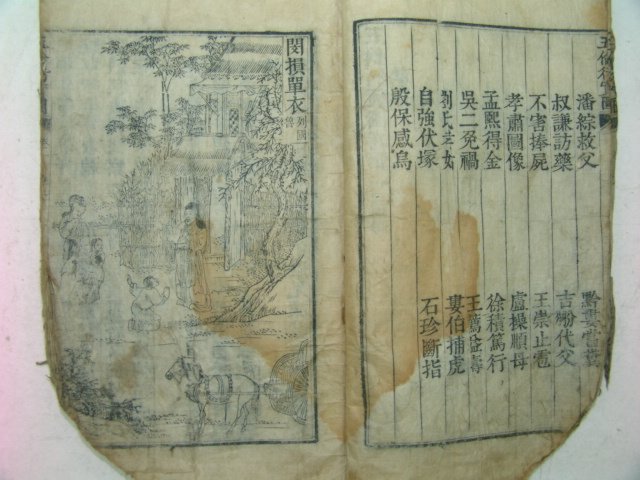 五倫行實圖
潘綜救父 黔婁嘗糞
叔謙訪藥 吉翂代父
不害捧屍 王崇止雹
孝肅圖像 盧操順母
孟熙得金 徐積篤行
吳二免禍 王薦益壽
劉氏孝姑 婁伯捕虎
自強伏塚 石珍斷指
殷保感烏
閔損單衣 列國魯